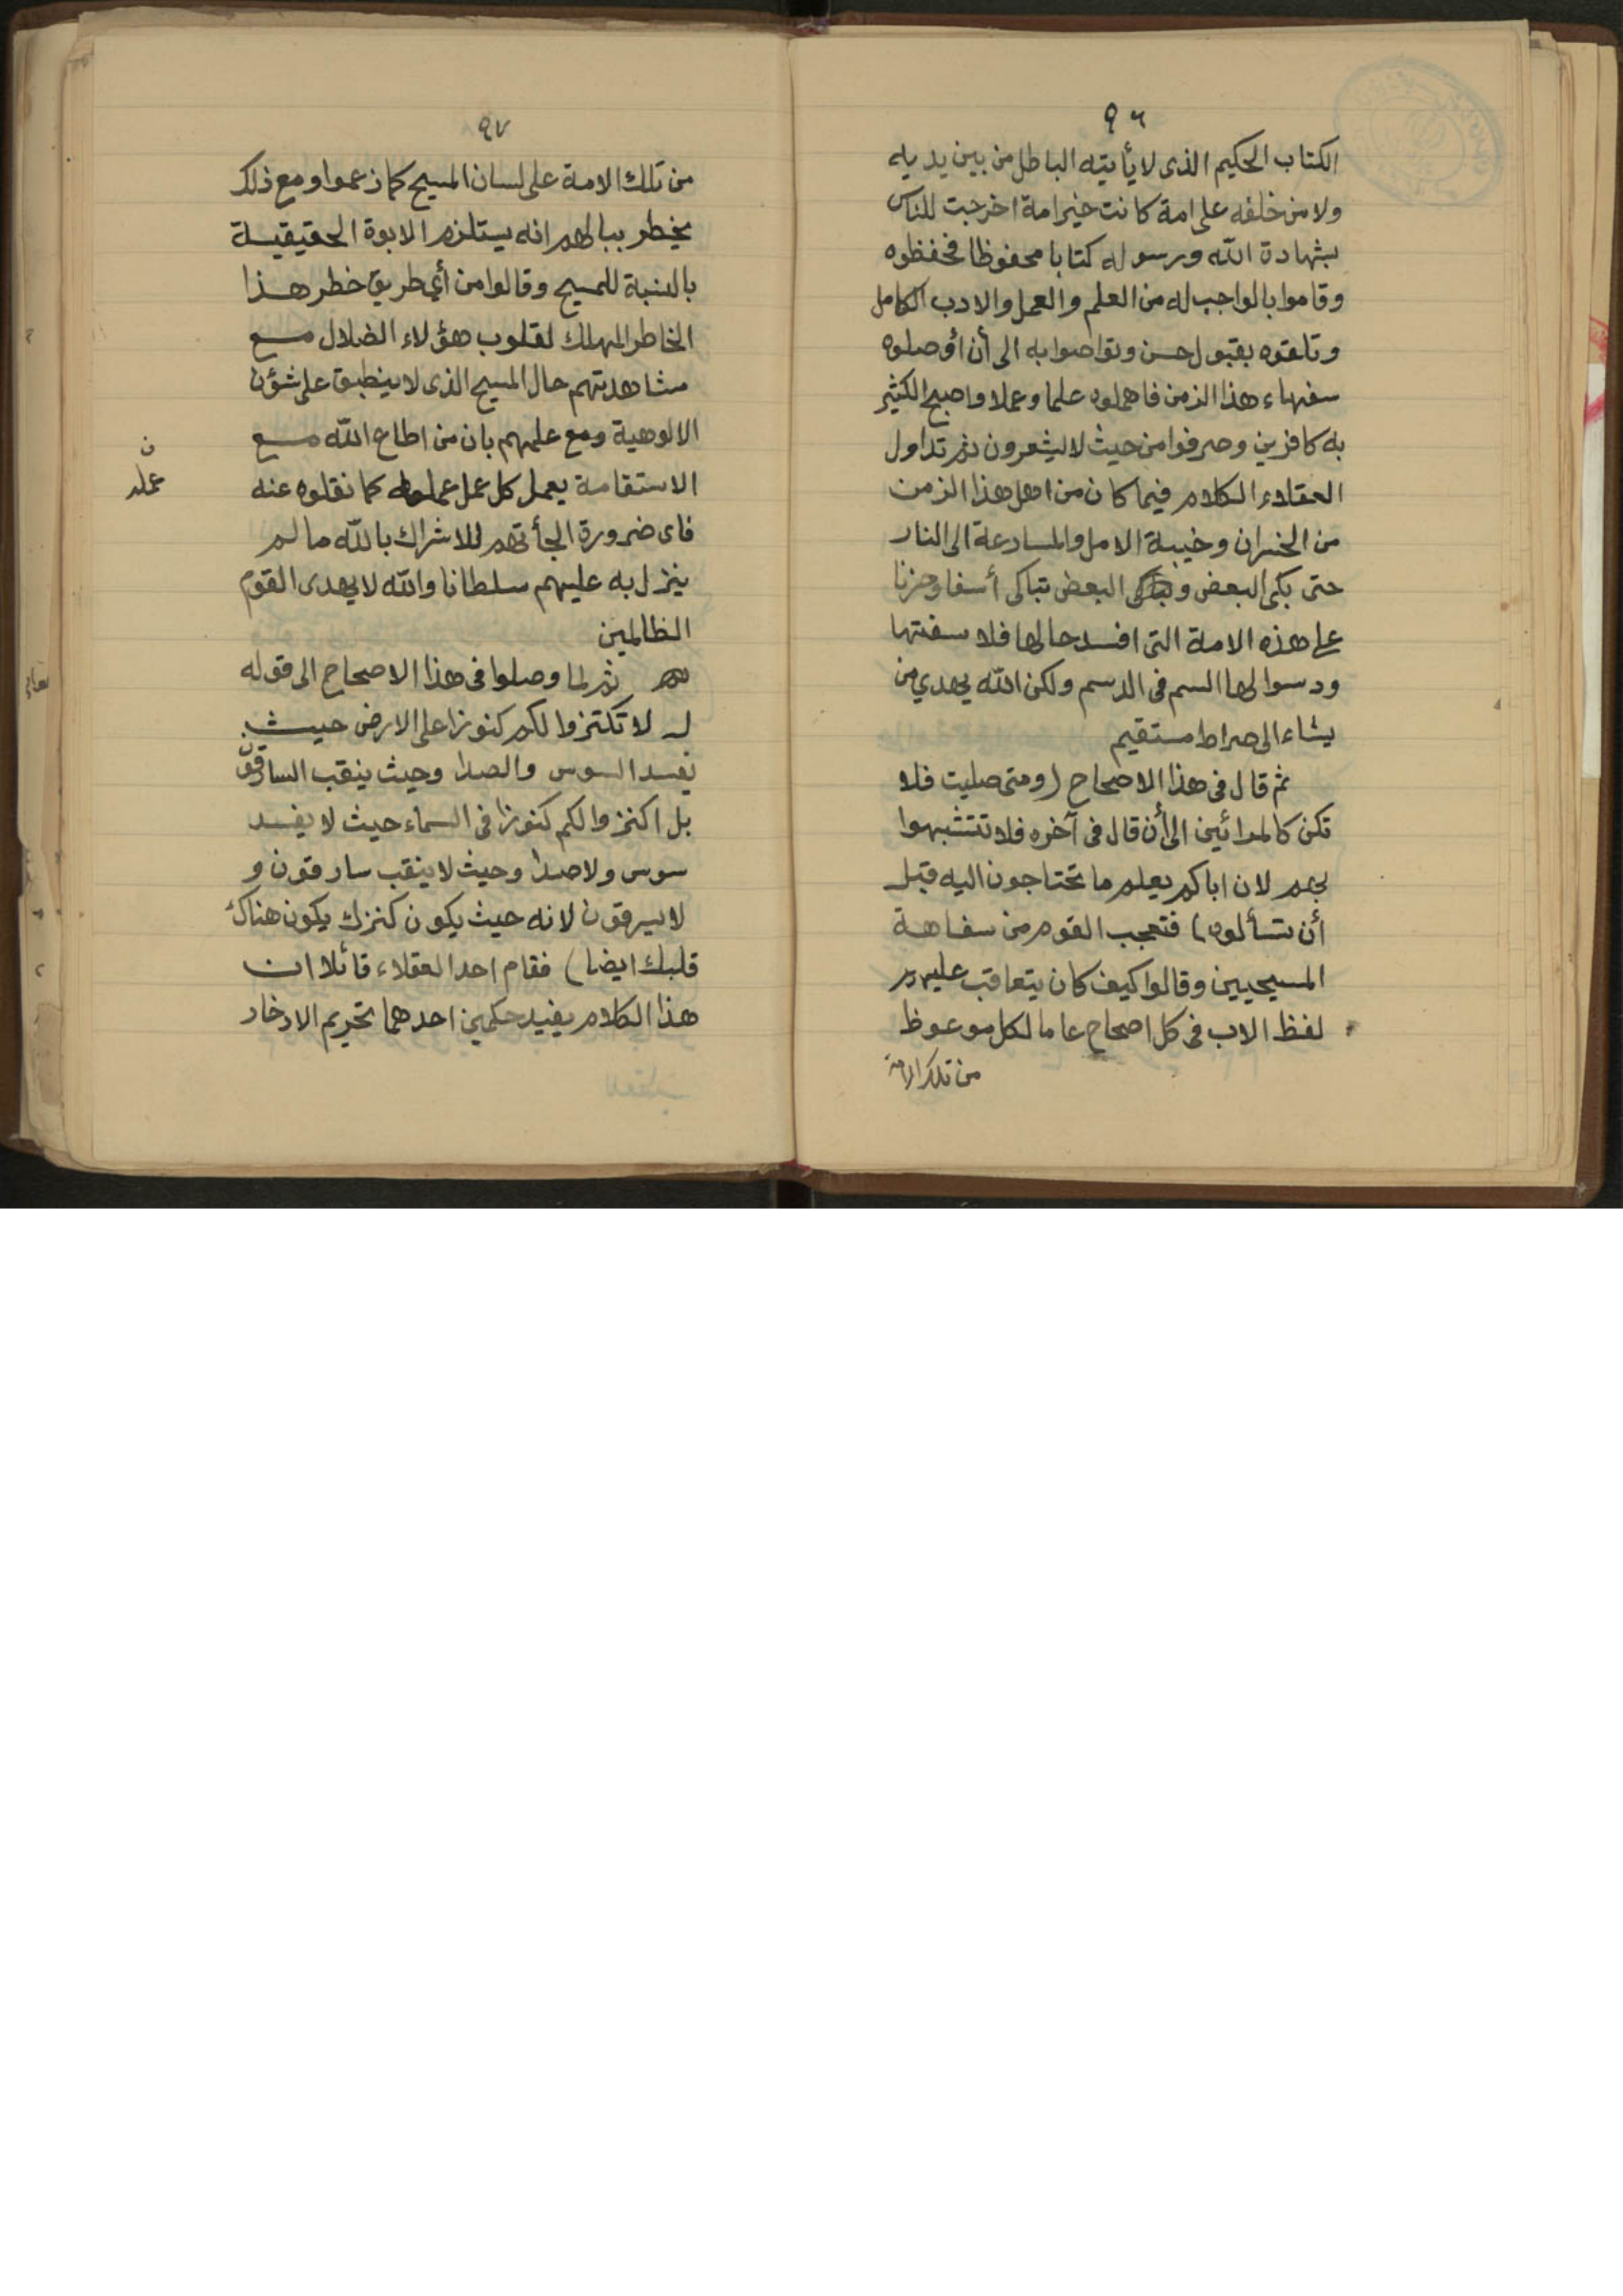 ٩٦
الكتاب الحكيم الذى لا يأيتيه الباطل من بين يديه
ولا من خلفه على امة كانت خير امة اخرجت للناس
بشهادة الله ورسوله كتابا محفوظا فحفظوه
وقاموا بالواجب له من العلم والعمل والادب الكامل
وتلقوه بقبول حسن وتواصوا به الى أن أوصلوه
سفهاء هذا الزمن فاهملوه علما وعملا واصبح الكثير
به كافرين وصرفوا من حيث لا يشعرون ثم تداول
العقلاء الكلام فيما كان من اهل هذا الزمن
من الخسران وخيبة الامل والمسارعة الى النار
حتى بكى البعض و البعض تباكى أسفا وحزنا
على هذه الامة التى افسد حالها فلاسفتها
ودسوا لها السم فى الدسم ولكن الله يهدي من
يشاء الى صراط مستقيم
ثم قال فى هذا الاصحاح (ومتى صليت فلا
تكن كالمرائين الى أن قال فى آخره فلا تتشبهوا
بهم لان اباكم يعلم ما تحتاجون اليه قبل
أن تسألوه) فتعجب القوم من سفاهة
المسيحيين وقالوا كيف كان يتعاقب عليهم
لفظ الاب فى كل اصحاح عاما لكل موعوظ
من تلك الامة
٩٧
من تلك الامة على لسان المسيح كما زعموا ومع ذلك
يخطر ببالهم انه يستلزم الابوة الحقيقية
بالنسبة للمسيح وقالوا من أي طريق خطر هذا
الخاطر المهلك لقلوب هؤلاء الضلال مع
مشاهدتهم حال المسيح الذى لا ينطبق على شؤن
الالوهية ومع علمهم بان من اطاع الله مع
الاستقامة يعمل كل عمل عمله كما نقلوه عنه
ن
عمله
فاى ضرورة الجأتهم للاشراك بالله ما لم
ينزل به عليهم سلطانا والله لا يهدى القوم
الظالمين
ثم لما وصلوا فى هذا الاصحاح الى قوله
لا تكتنزوا لكم كنوزا على الارض حيث
يفسد السوس والصدا وحيث ينقب السارقون
بل اكنزوا لكم كنوزا فى السماء حيث لا يفسد
سوس ولا صدا وحيث لا ينقب سارقون و
لا يسرقون لانه حيث يكون كنزك يكون هناك
قلبك ايضا) فقام احد العقلاء قائلا ان
هذا الكلام يفيد حكمين احدهما تحريم الادخار